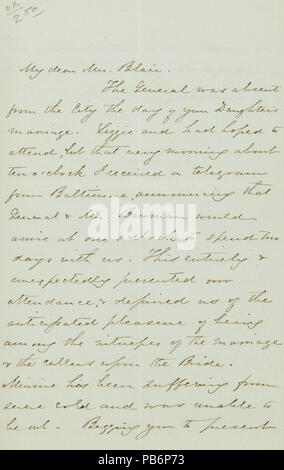 My dear Mrs. Blair.
The General was absent
from the City the day of your Daughter's
marriage. Lizzie and I had hoped to
attend, but that very morning about
ten o'clock I received a telegram
from Baltimore, announcing that
General & Mrs. Bowman would
arrive at one o'clock to spend two
days with us. This entirely &
unexpectedly prevented our
attendance, & deprived us of the
anticipated pleasure of being
among the witnesses of the marriage
& the callers upon the Bride.
Minnie has been suffering from
severe cold and was unable to
be out. Begging you to present
alamy
Image ID: PB6P73
www.alamy.com